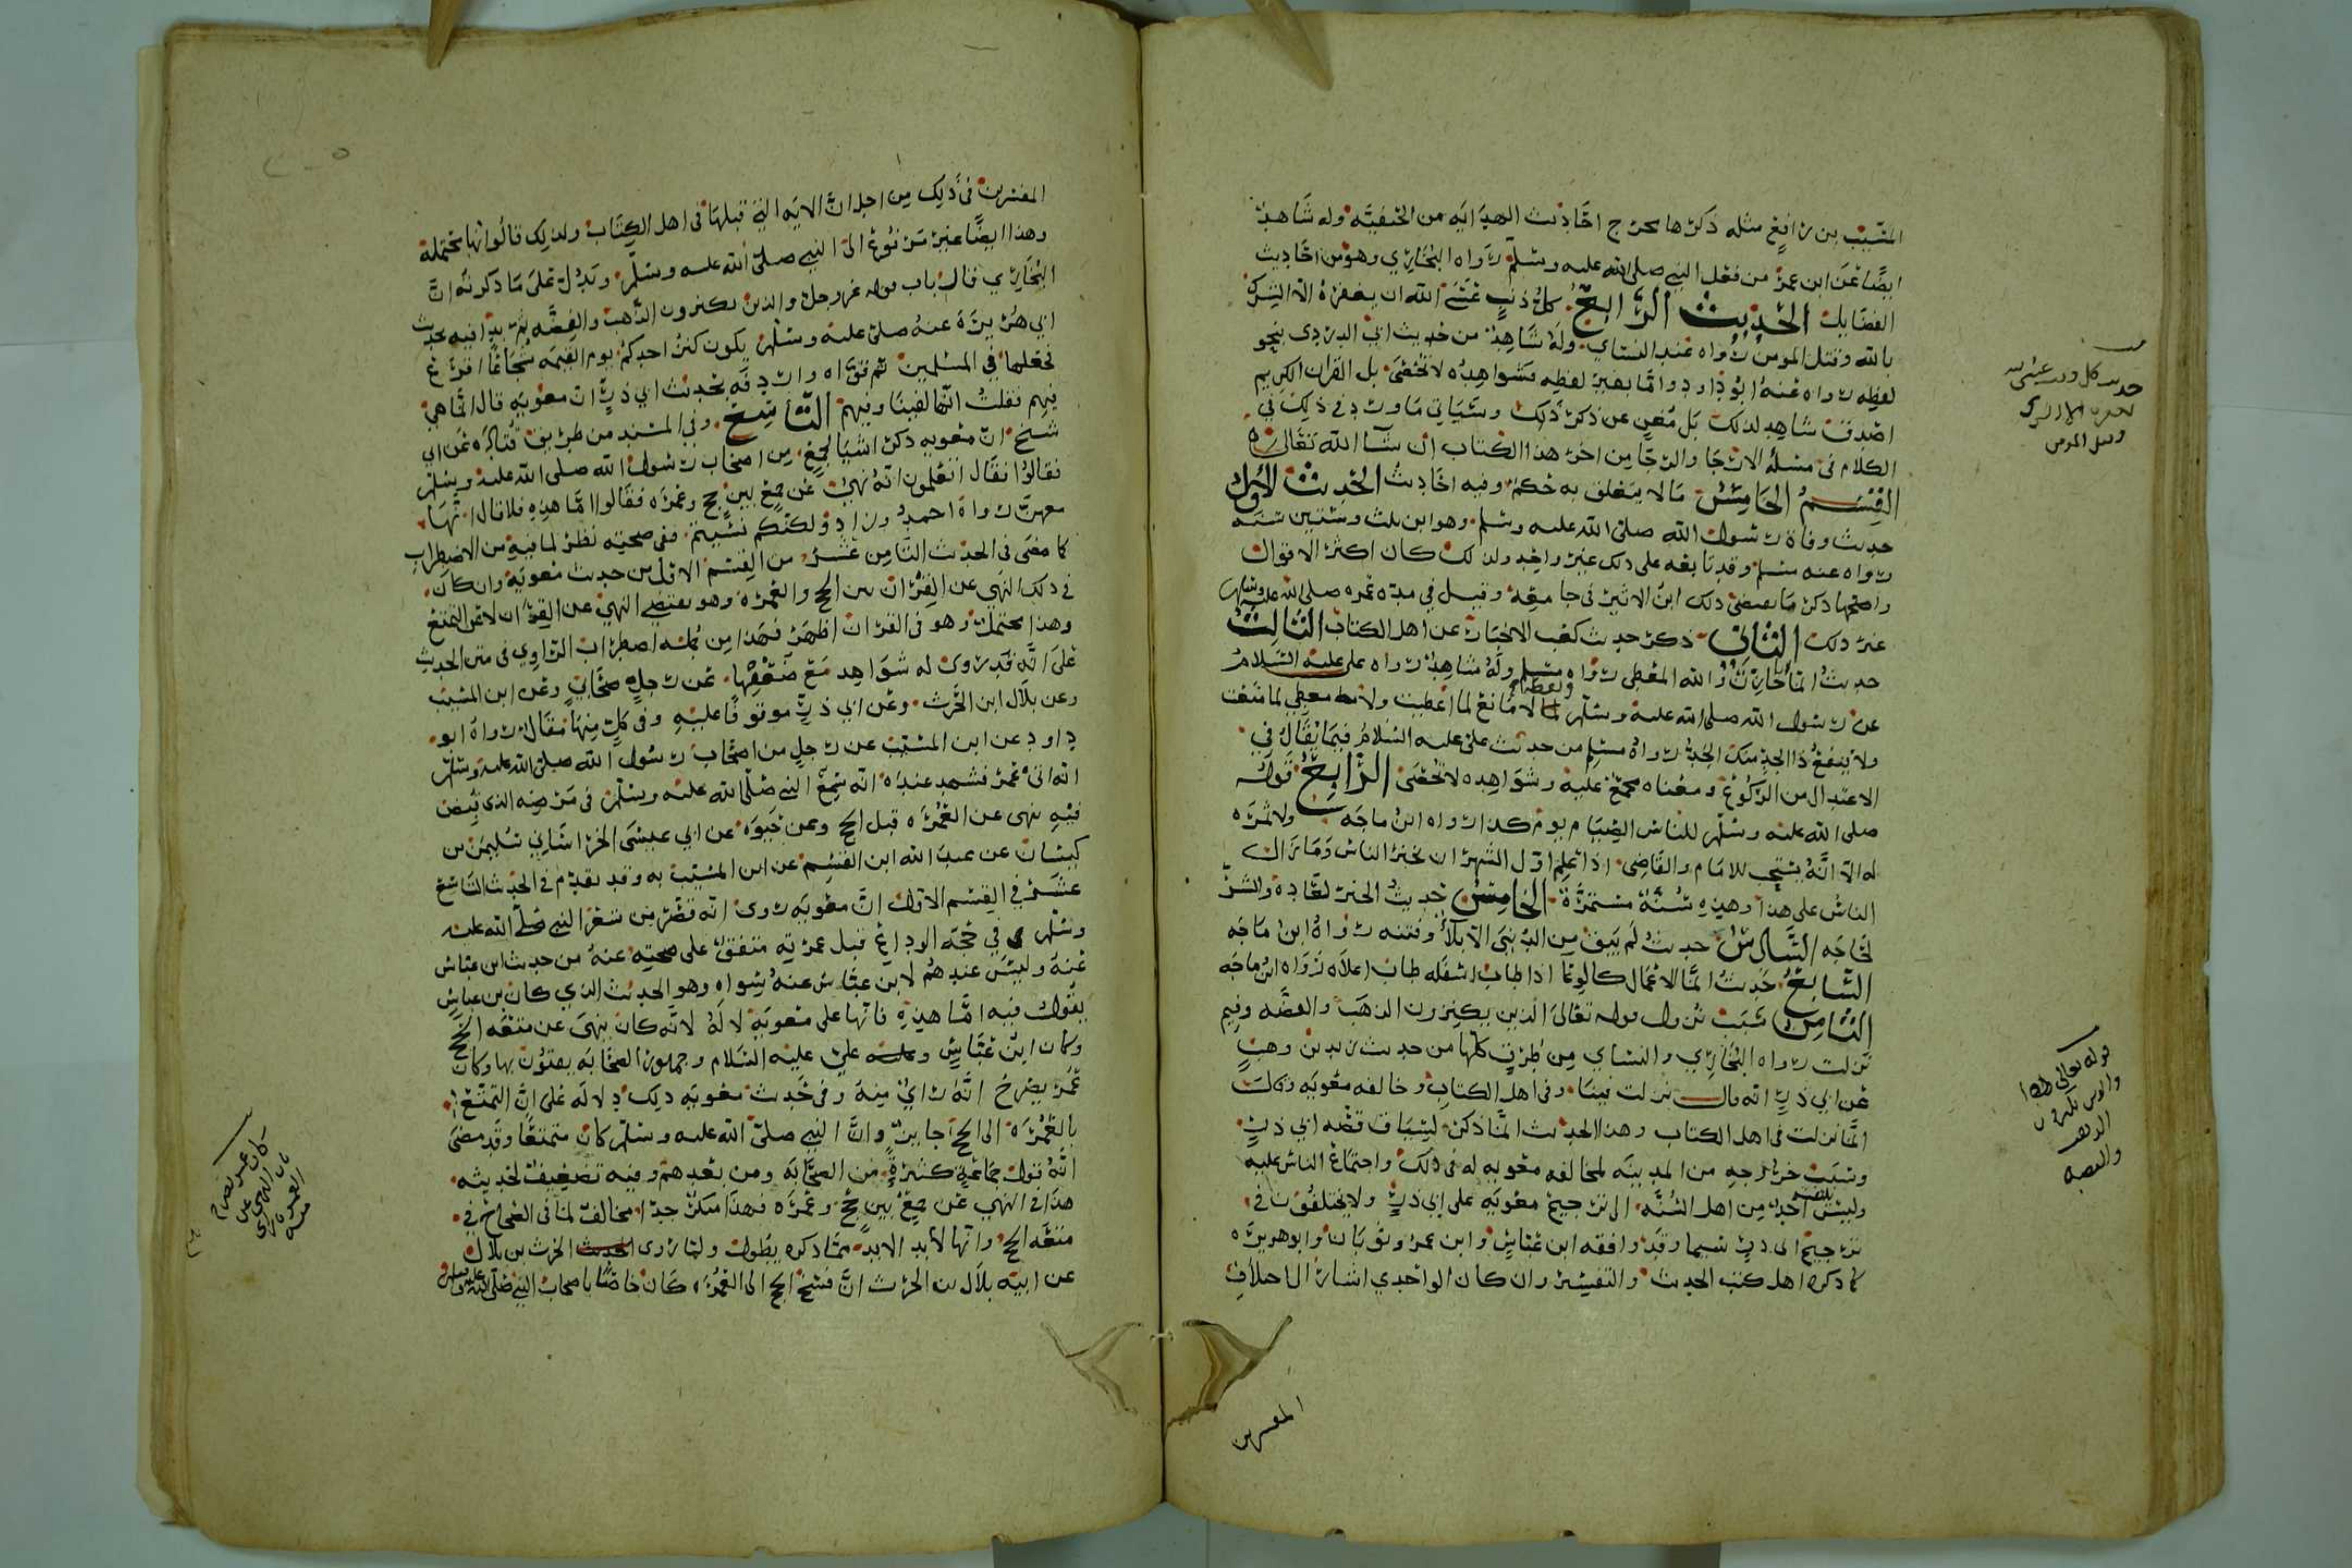 المسيب بن رافع مثله ذكرها مخرج احاديث الهدايه من الحنفيه وله شاهد
ايضا عن ابن عمر من فعل النبي صلى الله عليه وسلم رواه البخاري وهو من احاديث
الفضايل الحديث الرابع كل ذنب عسى الله ان يغفره الا الشرك
بالله وقتل المومن رواه عنه النساي وله شاهد من حديث ابي الدردى بنحو
لفظه رواه عنه ابو داود واما بغير لفظه فشواهده لا تخفى بل القران الكريم
اصدق شاهد لذلك بل مغن عن ذكر ذلك وسياتي ما ورد في ذلك في
الكلام في مسئلة الارجا والرجا من اخر هذا الكتاب ان شآ الله تعالى
القسم الخامس ما لا يتعلق به حكم وفيه احاديث الحديث الاول
حديث وفاة رسول الله صلى الله عليه وسلم وهو ابن ثلث وستين سنه
رواه عنه مسلم وقد تابعه على ذلك غير واحد ولذلك كان اكثر الاقوال
واصحها ذكر ما يقتضي ذلك ابن الاثير في جامعه وقيل في مدة عمره صلى الله عليه وسلم
غير ذلك الثاني ذكر حديث كعب الاحبار عن اهل الكتاب الثالث
حديث انما انا خازن والله المعطي رواه مسلم وله شاهد رواه على عليه السلام
عن رسول الله صلى الله عليه وسلم لا مانع لما اعطيت ولا معطي لما منعت
ولا ينفع ذا الجد منك الجد رواه مسلم من حديث علي عليه السلام فيما يقال في
الاعتدال من الركوع ومعناه مجمع عليه وشواهده لا تحصى الرابع قوله
صلى الله عليه وسلم للناس الصيام يوم كذا رواه ابن ماجه ولا ثمره
له الا انه يستحب للامام والقاضي اذا علم اول الشهر ان يخبر الناس وما زال
الناس على هذا وهذه سنة مستمرة الخامس حديث الخير لعادة والشر
لحاجه السادس حديث لم يبق من الدنيا الا بلا وفتنه رواه ابن ماجه
السابع حديث انما الاعمال كالوعا اذا طاب اسفله طاب اعلاه رواه ابن ماجه
الثامن سبب نزول قوله تعالى الذين يكنزون الذهب والفضه وفيم
نزلت رواه البخاري والنساي من طرق كلها من حديث زيد بن وهب
عن ابي ذر انه قال نزلت فينا وفي اهل الكتاب وخالفه معويه وقال
انما نزلت في اهل الكتاب وهذا الحديث انما ذكر لسياق قصه ابي ذر
وسبب خروجه من المدينه لمخالفه معويه له في ذلك واجتماع الناس عليه
وليس احد من اهل السنه الى ترجيح معويه على ابي ذر ولا يختلفون في
ترجيح ابى ذر سيما وقد وافقه ابن عباس وابن عمر وثوبان وابو هريره
كما ذكره اهل كتب الحديث والتفسير وان كان الواحدي اشار الى اختلاف
المفسرين
قوله تعالى
والذين يكنزون
الذهب
والفضه
المفسرين في ذلك من اجل ان الايه التي قبلها في اهل الكتاب ولذلك قالوا انها محتملة
وهذا ايضا غير مرفوع الى النبي صلى الله عليه وسلم ويدل على ما ذكرته ان
البخاري قال باب قوله عز وجل والذين يكنزون الذهب والفضه ثم بدا فيه بحديث
ابي هريرة عنه صلى عليه وسلم يكون كنز احدكم يوم القيمه شجاعا اقرع
فجعلها في المسلمين ثم قواه واردفه بحديث ابي ذر ان معويه قال انما هي
فيهم فقلت انها لفينا وفيهم التاسع وفي المسند من طريق قتاده عن ابي
شيخ ان معويه ذكر اشيا لجمع من اصحاب رسول الله صلى الله عليه وسلم
فقالوا فقال اتعلمون انه نهى عن جمع بين حج وعمره فقالوا اما هذه فلا قال انها
معهن رواه احمد وزاد ولكنكم نسيتم ففي صحته نظر لما فيه من الاضطراب
كما مضى في الحديث الثامن عشر من القسم الاول من حديث معويه وان كان
في ذلك النهي عن القران بين الحج والعمره وهو يقتضي النهي عن القران لا عن التمتع
وهذا محتمل وهو في القران اظهر فهذا من جمله اضطراب الراوي في متن الحديث
على انه قد روى له شواهد مع ضعفها عن رجل صحابي وعن ابن المسيب
وعن بلال ابن الحرث وعن ابي ذر موقوفا عليه وفي كل منها مقال رواه ابو
داود عن ابن المسيب عن رجل من اصحاب رسول الله صلى الله عليه وسلم
انه اتى عمر فشهد عنده انه سمع النبي صلى الله عليه وسلم في مرضه الذي قبض
فيه نهى عن العمره قبل الحج وعن حيوه عن ابي عيسى الخراساني سليمن بن
كيسان عن عبد الله ابن القسم عن ابن المسيب به وقد تقدم في الحديث التاسع
عشر في القسم الاول ان معويه روى انه قصر من شعر النبي صلى الله عليه
وسلم في حجه الوداع قبل عمرته متفق على صحته عنه من حديث ابن عباس
عنه وليس عندهم لابن عباس عنه سواه وهو الحديث الذي كان بن عباس
يقول فيه اما هذه فانها على معويه لا له لانه كان ينهى عن متعه الحج
وكان ابن عباس وعلي عليه السلام وجمهور الصحابه يفتون بها وكان
عمر يصرح انه راي منه وفي حديث معويه ذلك دلاله على ان التمتع
بالعمره الى الحج اجابر وان النبي صلى الله عليه وسلم كان متمتعا وقد مضى
انه قول جماعه كثيرة من الصحابه ومن بعدهم وفيه تضعيف لحديثه
هذا في النهي عن جمع بين حج وعمره فهذا منكر جدا مخالف لما في الصحاح في
متعه الحج وانها لابد الابد مما ذكره يطول ولما روى الحديث الحرث بن بلال
عن ابيه بلال بن الحرث ان فسخ الحج الى العمره كان خاصا باصحاب النبي صلى الله عليه وسلم